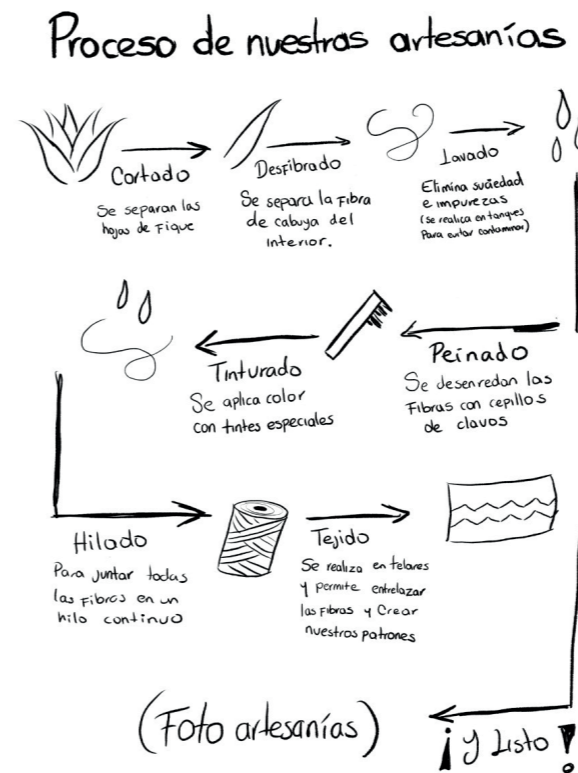 Proceso de nuestras artesanías
Cortado
Se separan las
hojas de Fique
Desfibrado
Se separa la Fibra
de cabuya del
Interior.
Lavado
Elimina suciedad
e impurezas
(se realiza en tanques
Para evitar contaminar)
Peinado
Se desenredan las
Fibras con cepillos
de clavos
Tinturado
Se aplica color
con tintes especiales
Hilado
Para juntar todas
las Fibras en un
hilo continuo
Tejido
Se realiza en telares
y permite entrelazar
las Fibras y Crear
nuestros patrones
¡Y Listo!
(Foto artesanías)